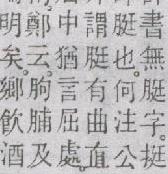 書無脡字挺
脡也。何注公
謂脡有曲直
中猶言屈處。
鄭云。朐脯及
明矣。鄉飲酒